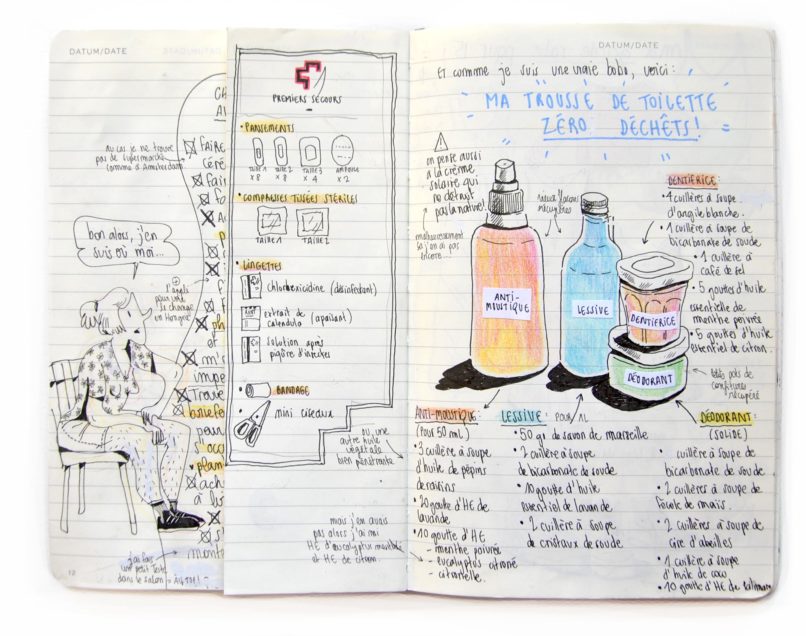 DATUM/DATE
au cas je ne trouve
pas de supermarché
comme à Amsterdam.
bon alors, j'en
suis où moi...
faire
faire
et
m's
impe
Trouve
pour
plan
achè
à l's
j'ai fait
une petit Teste
dans le salon
12
PREMIERS SECOURS
• PANSEMENTS
TAILLE 1 TAILLE 2 TAILLE 3 AMPOULE
x 8 x 8 x 4 x 2
• COMPRESSES TISSÉES STÉRILES
TAILLE 1 TAILLE 2
• LINGETTES
chlorhexicidine (désinfectant)
extrait de
calendula (apaisant)
solution après
piqûre d'insectes
• BANDAGE
• mini ciseaux
ou, une
autre huile
végétale
bien pénétrante
mais j'en avais
pas alors j'ai mi
HE d'eucalyptus
et HE de citron.
DATUM/DATE
Et comme je suis une vraie bobo, voici :
MA TROUSSE DE TOILETTE
ZÉRO DÉCHÊTS!
on pense aussi
a la crème
solaire qui
ne détruit
pas la nature!
malheureusement
j'en ai pas
encore...
vieux flacons
récupérés
ANTI-
MOUSTIQUE
LESSIVE
DENTIFRICE
DÉODORANT
DENTIFRICE:
• 4 cuillères à soupe
d'argile blanche.
• 1 cuillère à soupe de
bicarbonate de soude
• 1 cuillère à
café de sel
• 5 gouttes d'huile
essentielle de
menthe poivrée
• 5 gouttes d'huile
essentiel de citron.
petits pots de
confitures
récupéré
ANTI-MOUSTIQUE:
(pour 50 mL)
• 3 cuillère à soupe
d'huile de pépins
de raisins
• 20 goutte d'HE de
lavande
• 10 goutte d'HE
– menthe poivrée
– eucalyptus citroné
– citronelle.
LESSIVE: pour 1L
• 50 gr de savon de marseille
• 2 cuillère à soupe
de bicarbonate de soude
• 10 goutte d'huile
essentiel de lavande
• 2 cuillère à soupe
de cristaux de soude
DÉODORANT:
(SOLIDE)
cuillère à soupe de
bicarbonate de soude
• 2 cuillères à soupe de
fécule de maïs.
• 2 cuillères à soupe de
cire d'abeilles
• 1 cuillère à soupe
d'huile de coco
• 10 goutte d'HE de